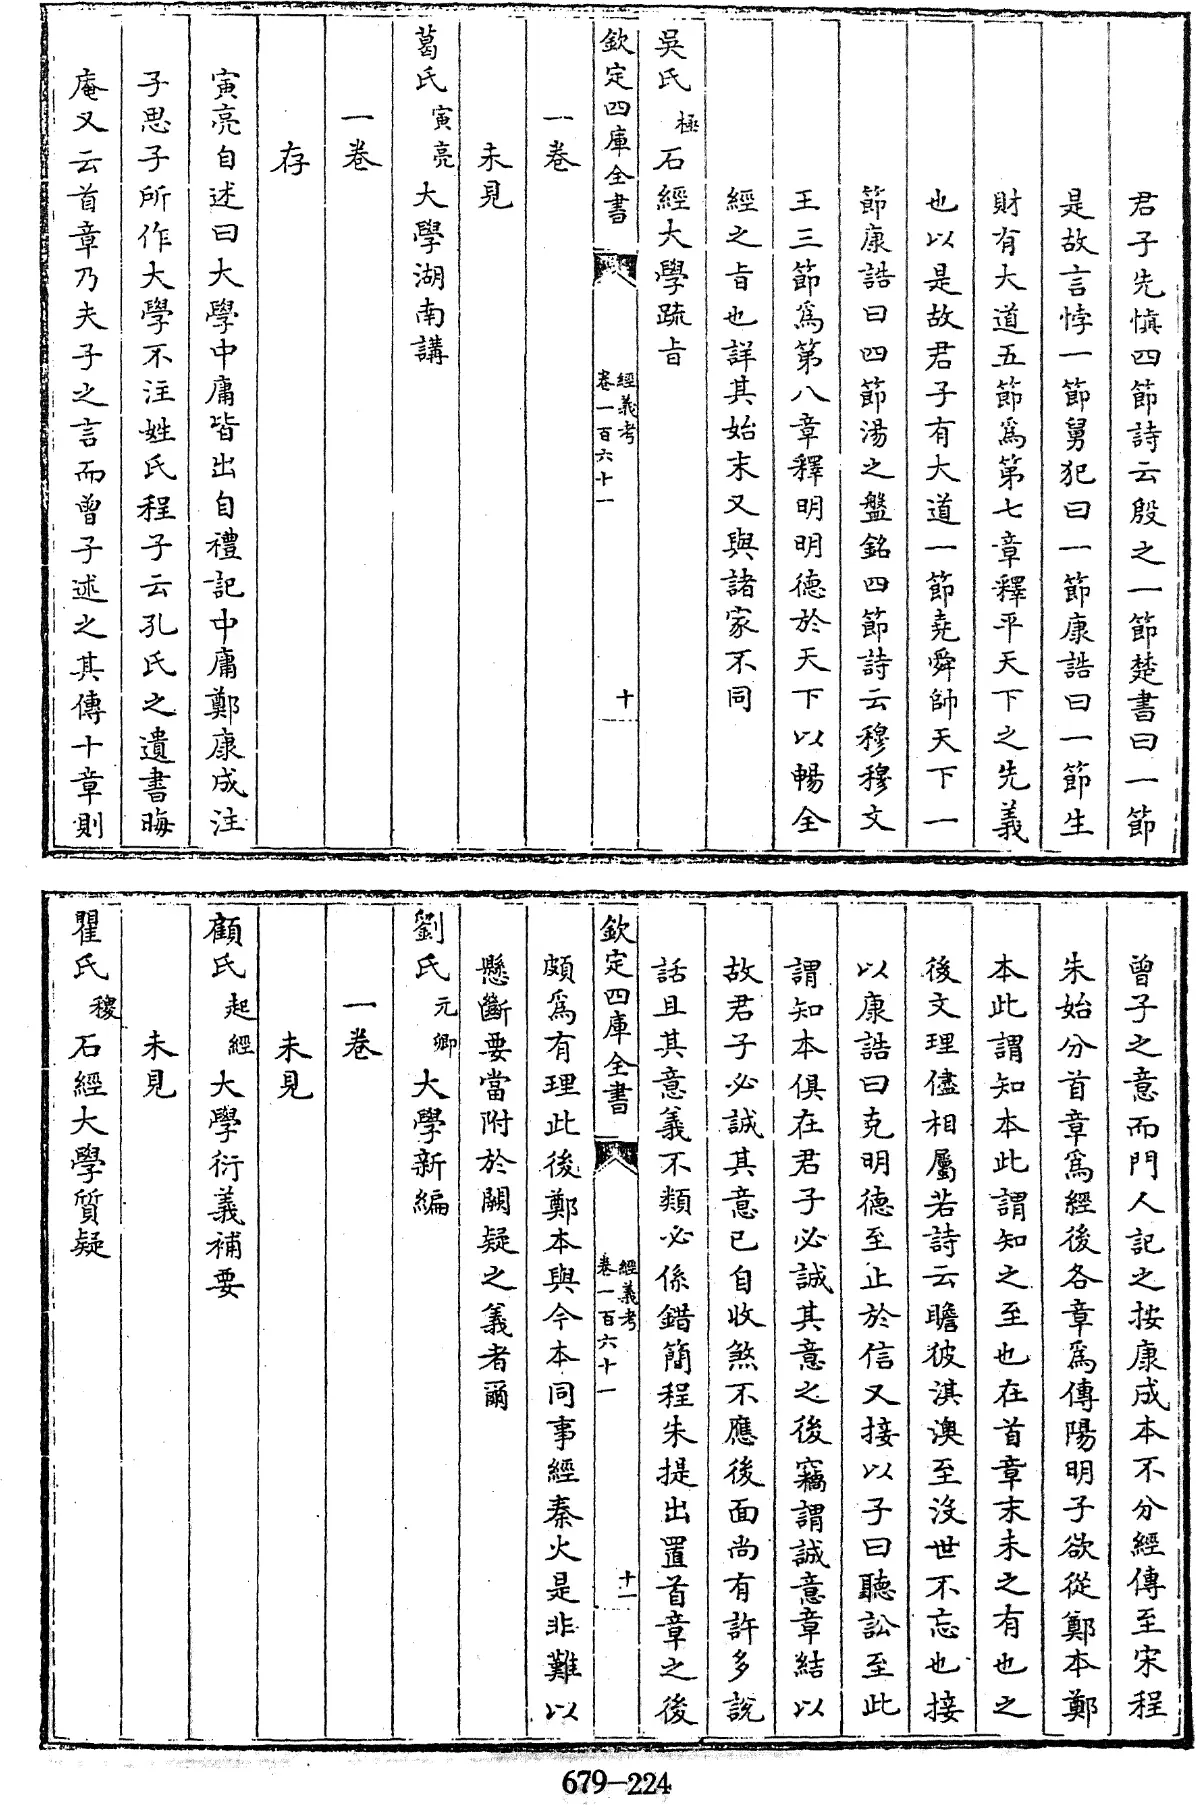 君子先慎四節詩云殷之一節楚書曰一節
是故言悖一節舅犯曰一節康誥曰一節生
財有大道五節爲第七章釋平天下之先義
也以是故君子有大道一節堯舜帥天下一
節康誥曰四節湯之盤銘四節詩云穆穆文
王三節爲第八章釋明明德於天下以暢全
經之旨也詳其始末又與諸家不同
吳氏極石經大學疏旨
欽定四庫全書
經義考
卷一百六十一
十
一卷
未見
葛氏寅亮大學湖南講
一卷
存
寅亮自述曰大學中庸皆出自禮記中庸鄭康成注
子思子所作大學不注姓氏程子云孔氏之遺書晦
庵又云首章乃夫子之言而曾子述之其傳十章則
曾子之意而門人記之按康成本不分經傳至宋程
朱始分首章爲經後各章爲傳陽明子欲從鄭本鄭
本此謂知本此謂知之至也在首章末未之有也之
後文理儘相屬若詩云瞻彼淇澳至沒世不忘也接
以康誥曰克明德至止於信又接以子曰聽訟至此
謂知本俱在君子必誠其意之後竊謂誠意章結以
故君子必誠其意已自收煞不應後面尚有許多說
話且其意義不類必係錯簡程朱提出置首章之後
欽定四庫全書
經義考
卷一百六十一
十一
頗爲有理此後鄭本與今本同事經秦火是非難以
懸斷要當附於闕疑之義者爾
劉氏元卿大學新編
一卷
未見
顧氏起經大學衍義補要
未見
瞿氏稷石經大學質疑
679-224